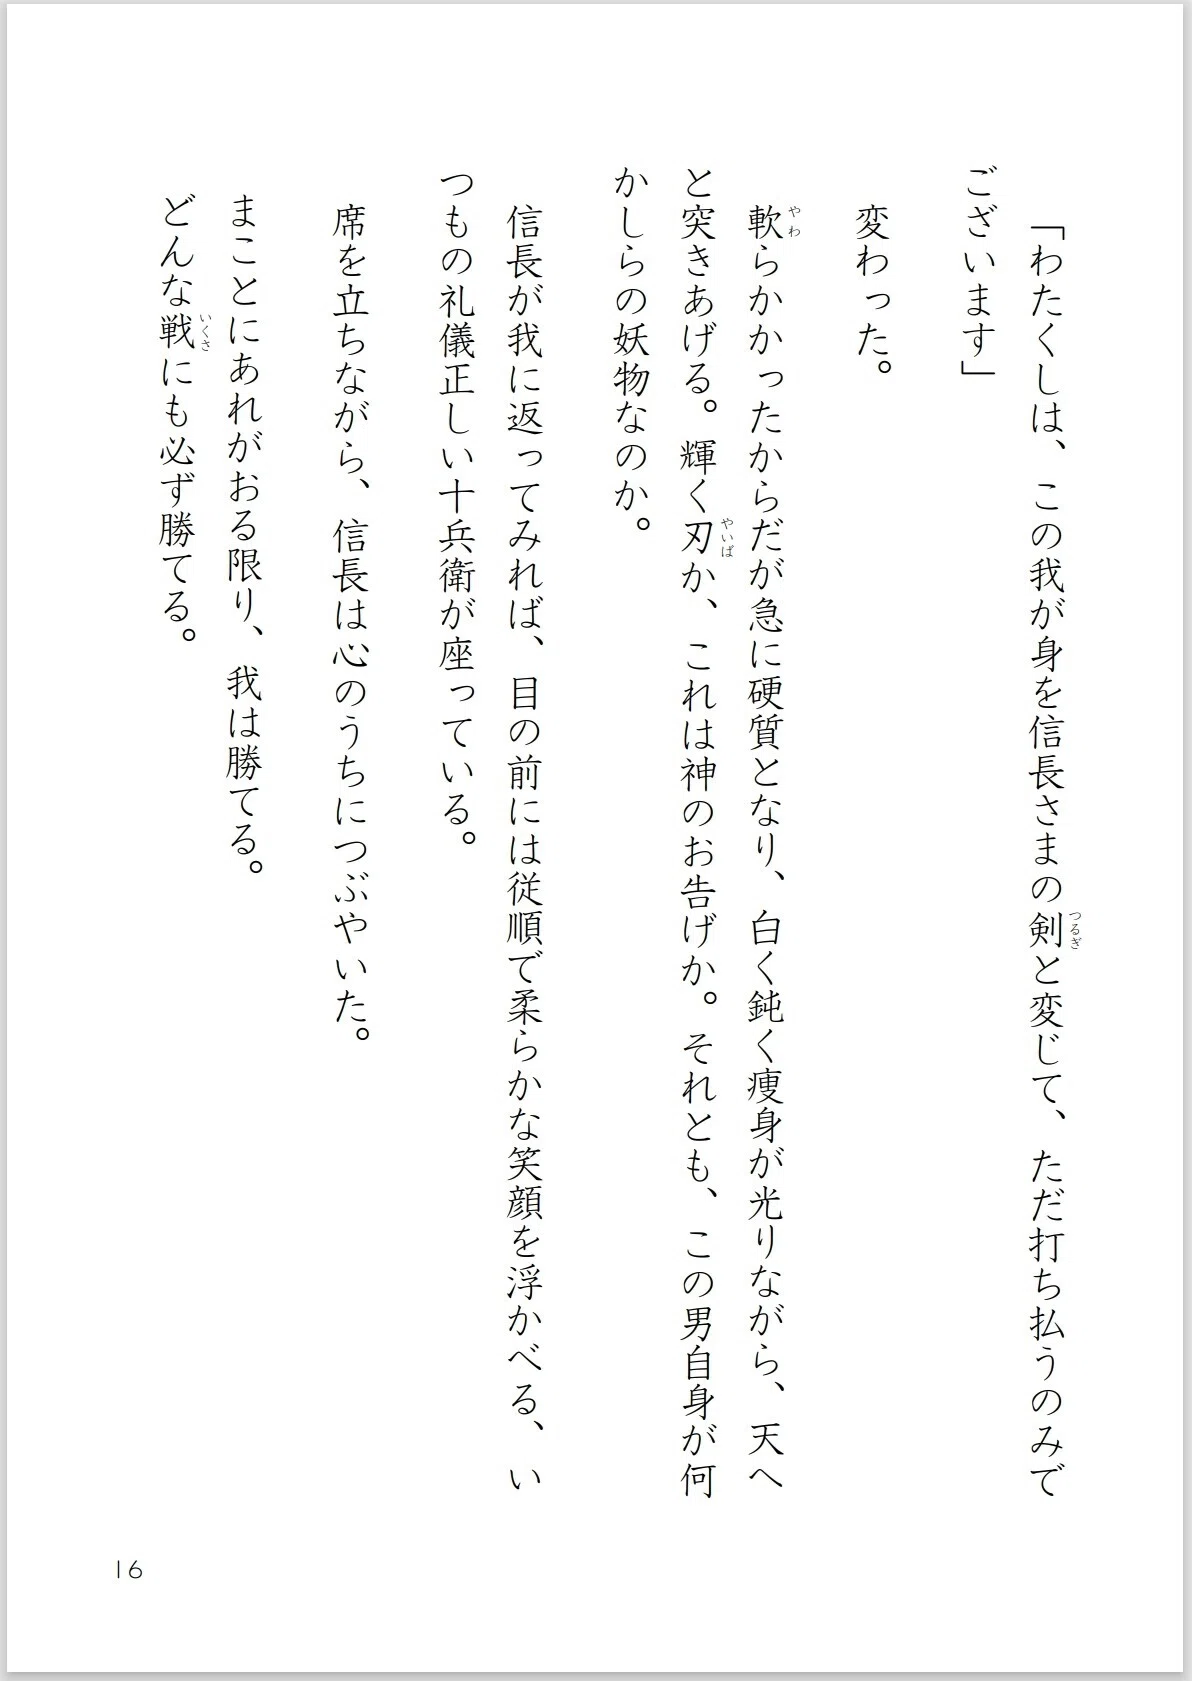 「わたくしは、この我が身を信長さまの剣と変じて、ただ打ち払うのみで
つるぎ
ございます」
変わった。
軟らかかったからだが急に硬質となり、白く鈍く痩身が光りながら、天へ
やわ
と突きあげる。輝く刃か、これは神のお告げか。それとも、この男自身が何
やいば
かしらの妖物なのか。
信長が我に返ってみれば、目の前には従順で柔らかな笑顔を浮かべる、い
つもの礼儀正しい十兵衛が座っている。
席を立ちながら、信長は心のうちにつぶやいた。
まことにあれがおる限り、我は勝てる。
どんな戦にも必ず勝てる。
いくさ
16